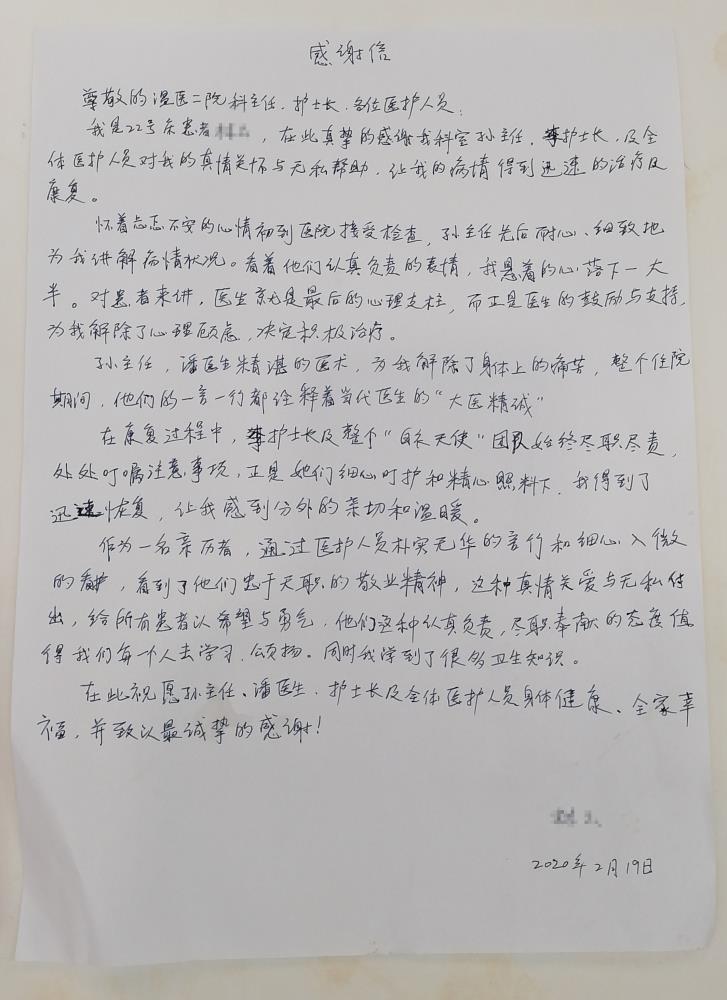 感谢信
尊敬的温医二院科主任、护士长、各位医护人员:
我是22号床患者 , 在此真挚的感谢我科室孙主任、李护士长,及全
体医护人员对我的真情关怀与无私帮助,让我的病情得到迅速的治疗及
康复。
怀着忐忑不安的心情初到医院接受检查,孙主任先后耐心、细致地
为我讲解病情状况。看着他们认真负责的表情,我悬着的心落下一大
半。对患者来讲,医生就是最后的心理支柱,而正是医生的鼓励与支持,
为我解除了心理顾虑,决定积极治疗。
孙主任,潘医生精湛的医术,为我解除了身体上的痛苦,整个住院
期间,他们的一言一行都诠释着当代医生的“大医精诚”
在康复过程中,李护士长及整个“白衣天使”团队始终尽职尽责,
处处叮嘱注意事项,正是她们细心呵护和精心照料下,我得到了
迅速恢复,让我感到分外的亲切和温暖。
作为一名亲历者,通过医护人员朴实无华的言行和细心入微
的 ,看到了他们忠于天职的敬业精神,这种真情关爱与无私付
出,给所有患者以希望与勇气,他们这种认真负责,尽职奉献的态度值
得我们每一个人去学习、颂扬。同时我学到了很多卫生知识。
在此祝愿孙主任、潘医生、护士长及全体医护人员身体健康、全家幸
福,并致以最诚挚的感谢!
2020年2月19日